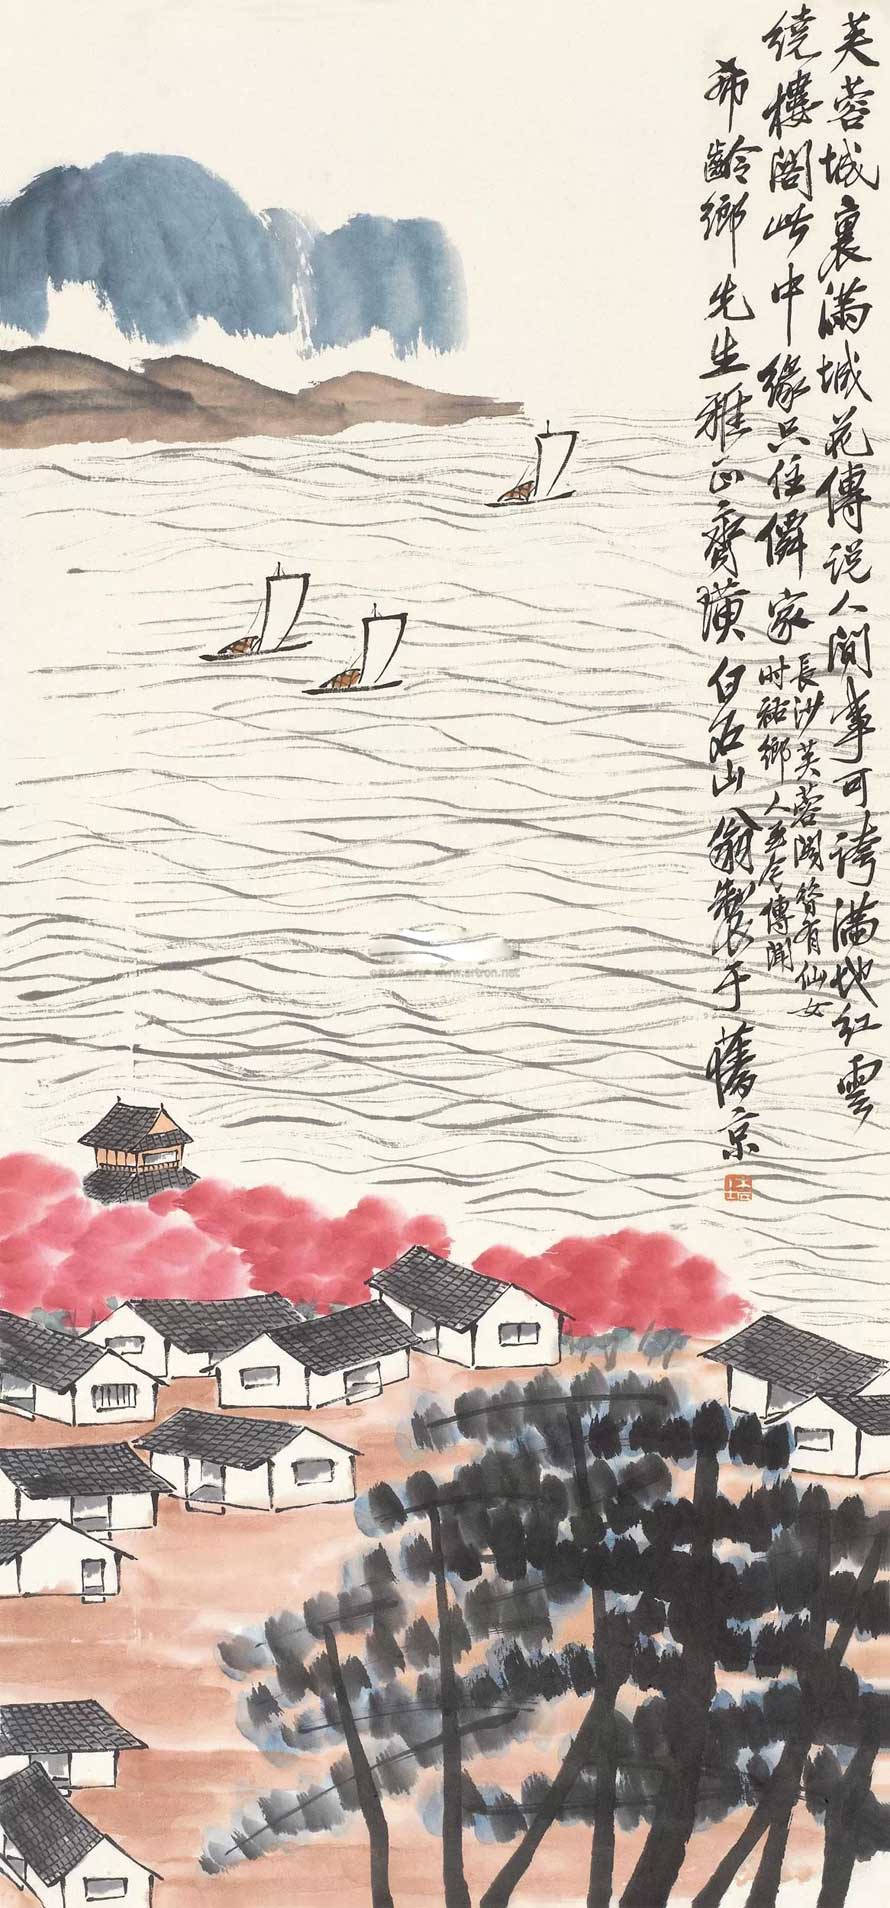 芙蓉城裏滿城花傳说人間事可誇滿地红雲
繞樓閣此中緣只住儔家
長沙芙蓉閣昔有仙女
时祐鄉人至今傳聞
希齡鄉先生雅正齊璜白石山翁製于舊京
www.artron.net